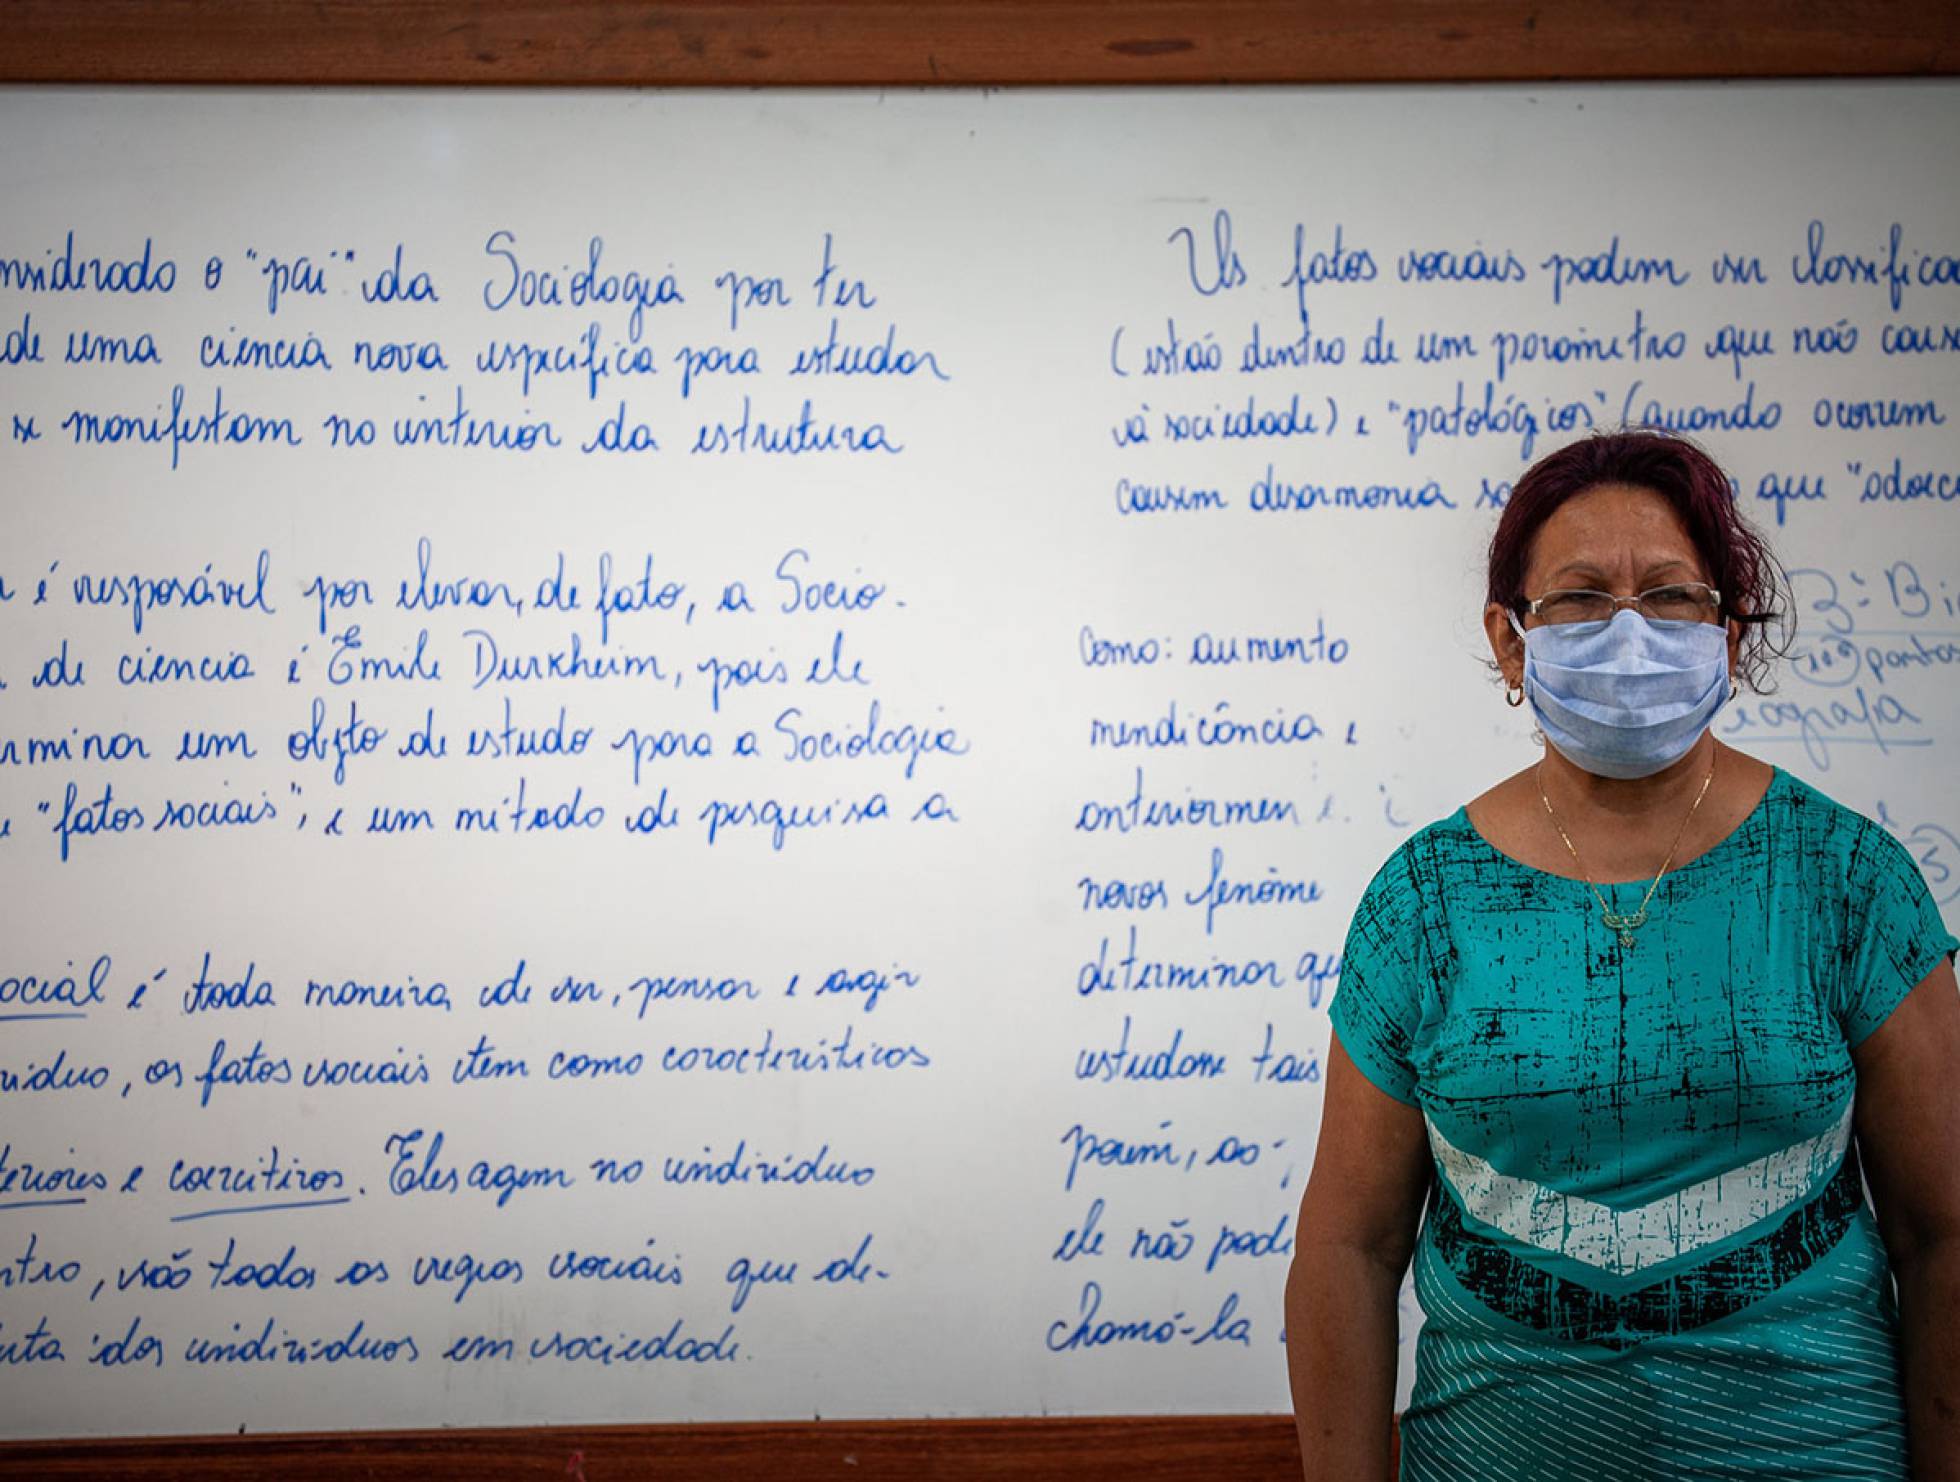 nsiderado o "pai" da Sociologia por ter
de uma ciência nova específica para estudar
se manifestam no interior da estrutura
é resposável por elevar, de fato, a Socio-
de ciencia é Émile Durkheim, pois ele
rminar um objto de estudo para a Sociologia
"fatos sociais", e um método de pesquisa a
ocial é toda maneira de ser, pensar e agir
víduo, os fatos sociais têm como características
teriores e coercitivos. Eles agem no indivíduo
ntro, são todas as regras sociais que de-
uta dos indivíduos em sociedade.
Os fatos sociais podem ser classifica
(estão dentro de um parâmetro que não caus
à sociedade) e "patológicos" (quando ocorrem
causem desarmonia so que "adoec
como: aumento
mendicância e
anteriormen
novos fenôme
determinar qu
estudasse tais
porém, ao
ele não pode
chamá-la
3º Bi
pontos
eografia
5